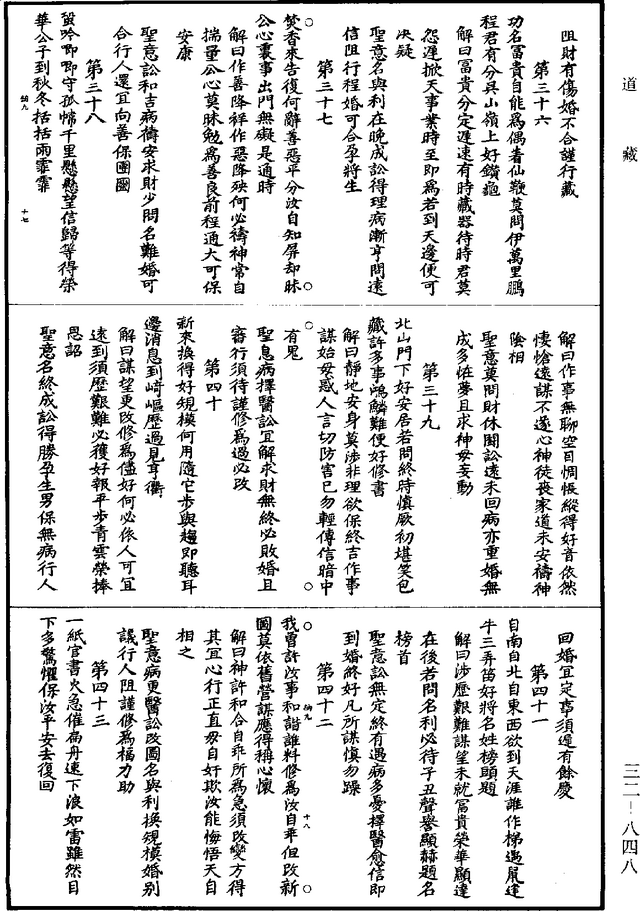 道藏
阻財有傷婚不合謹行藏
第三十六
功名富貴自能為偶者仙鞭莫問伊萬里鵬
程君有分具山嶺上好鑽龜
解曰富貴分定遲速有時藏器待時君莫
怨遲掀天事業時至即為若到天邊便可
決疑
聖意名與利在晚成訟得理病漸亨問遠
信阻行程婚可合孕將生
第三十七
焚香來告復何辭善惡平分汝自知屏却昧
公心裏事出門無礙是通時
解曰作善降祥作惡降殃何必禱神常自
揣量公心莫昧勉為善良前程通大可保
安康
聖意訟和吉病禱安求財少問名難婚可
合行人還宜向善保團圓
第三十八
蛩吟唧唧守孤幃千里懸懸望信歸等得榮
華公子到秋冬括括雨霏霏
十七
解曰作事無聊空自惆悵縱得好音依然
悽愴遠謀不遂心神徒喪家道未安禱神
陰相
聖意莫問財休鬬訟遠未回病亦重婚無
成多怪夢且求神毋妄動
第三十九
北山門下好安居若問終時慎厥初堪笑包
藏許多事鴻鱗難便好修書
解曰靜地安身莫涉非理欲保終吉作事
謀始毋惑人言切防害己勿輕傳信暗中
有鬼
聖息病擇醫訟宜解求財無終必敗婚且
審行須待謹修為過必改
第四十
新來換得好規模何用隨它步與趨即聽耳
邊消息到崎嶇歷過見亨衢
解曰謀望更改修為儘好何必依人可宜
速到須歷艱難必獲好報平步青雲榮捧
恩詔
聖意名終成訟得勝孕生男保無病行人
回婚宜定事須遲有餘慶
第四十一
自南自北自東西欲到天涯誰作梯遇鼠逢
牛三弄笛好將名姓榜頭題
解曰涉歷艱難謀望未就富貴榮華顯達
在後若問名利必待子丑聲譽顯赫題名
榜首
聖意訟無定終有遇病多憂擇醫愈信即
到婚終好凡所謀慎勿躁
第四十二
我曾許汝事和諧誰料修為汝自乖但改新
圖莫依舊營謀應得稱心懷
十八
解曰神許和合自乖所為急須改變方得
其宜心行正直毋自奸欺汝能悔悟天自
相之
聖意病更醫訟改圖名與利換規模婚別
議行人阻謹修為福力助
第四十三
一紙官書火急催扁舟速下浪如雷雖然目
下多驚懼保汝平安去復回
三二－八四八